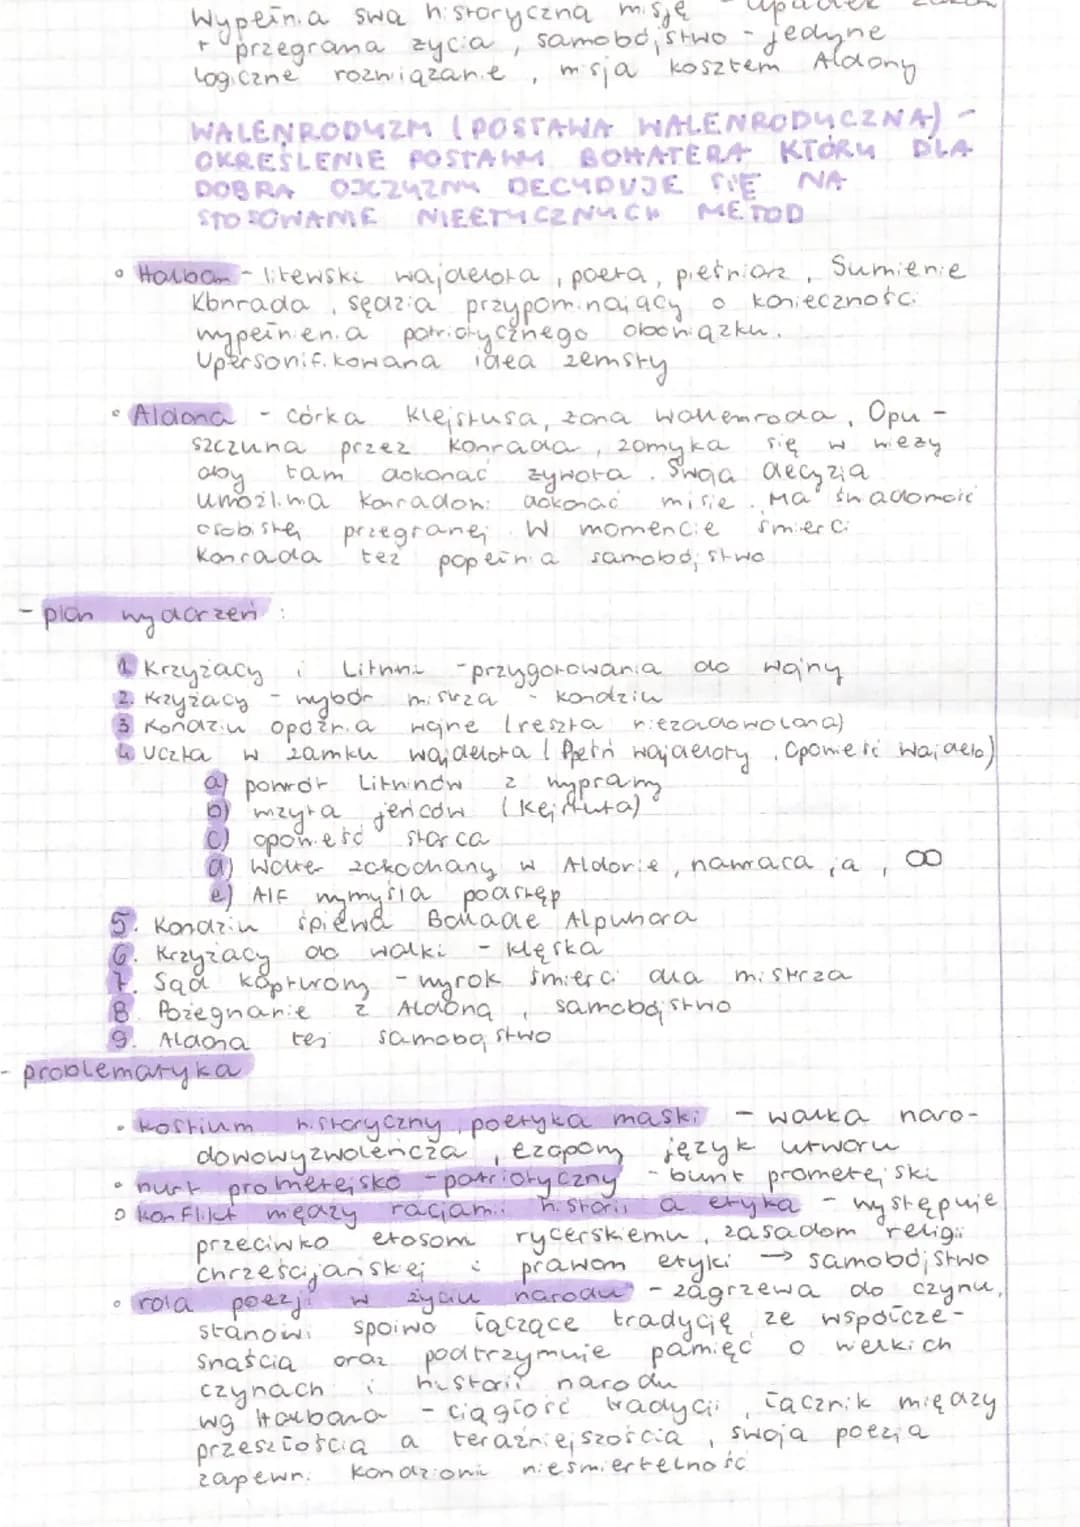 Wypełnia swą historyczną misję - upadek zakonu
+ przegrana życia, samobójstwo - jedyne
logiczne rozwiązanie, misja kosztem Aldony
WALENRODYZM (POSTAWA WALENRODYCZNA) -
OKREŚLENIE POSTAWY BOHATERA KTÓRY DLA
DOBRA OJCZYZNY DECYDUJE SIĘ NA
STOSOWANIE NIEETYCZNYCH METOD
• Halban - litewski wajdelota, poeta, pieśniarz. Sumienie
Konrada, sędzia przypominający o konieczności
wypełnienia patriotycznego obowiązku.
Upersonifikowana idea zemsty
• Aldona - córka Kiejstusa, żona Wallenroda. Opu-
szczona przez Konrada, zamyka się w wieży
aby tam dokonać żywota. Swoją decyzją
umożliwia Konradowi dokonać misję. Ma świadomość
osobistej przegranej. W momencie śmierci
Konrada też popełnia samobójstwo
- plan wydarzeń:
1. Krzyżacy i Litwini - przygotowania do wojny
2. Krzyżacy - wybór mistrza - Kondziu
3. Kondziu opóźnia wojnę (reszta niezadowolona)
4. Uczta w zamku wajdelota (Pieśń wajdeloty, Opowieść Wajdelo)
a) powrót Litwinów z wyprawy
b) wizyta jeńców (Kiejstuta)
c) opowieść starca
d) Walter zakochany w Aldonie, nawraca ją, ∞
e) Alf wymyśla podstęp
5. Kondziu śpiewa Balladę Alpuhara
6. Krzyżacy do walki - klęska
7. Sąd kapturowy - wyrok śmierci dla mistrza
8. Pożegnanie z Aldoną, samobójstwo
9. Aldona też samobójstwo
- problematyka
• kostium historyczny, poetyka maski - walka naro-
dowowyzwoleńcza, ezopowy język utworu
• nurt prometejsko-patriotyczny - bunt prometejski
• konflikt między racjami historii a etyką - występuje
przeciwko etosowi rycerskiemu, zasadom religii
chrześcijańskiej i prawom etyki → samobójstwo
• rola poezji w życiu narodu - zagrzewa do czynu,
stanowi spoiwo łączące tradycję ze współcze-
snością oraz podtrzymuje pamięć o wielkich
czynach i historii narodu
wg Halbana - ciągłość tradycji, łącznik między
przeszłością a teraźniejszością, swoją poezją
zapewni Kondziowi nieśmiertelność